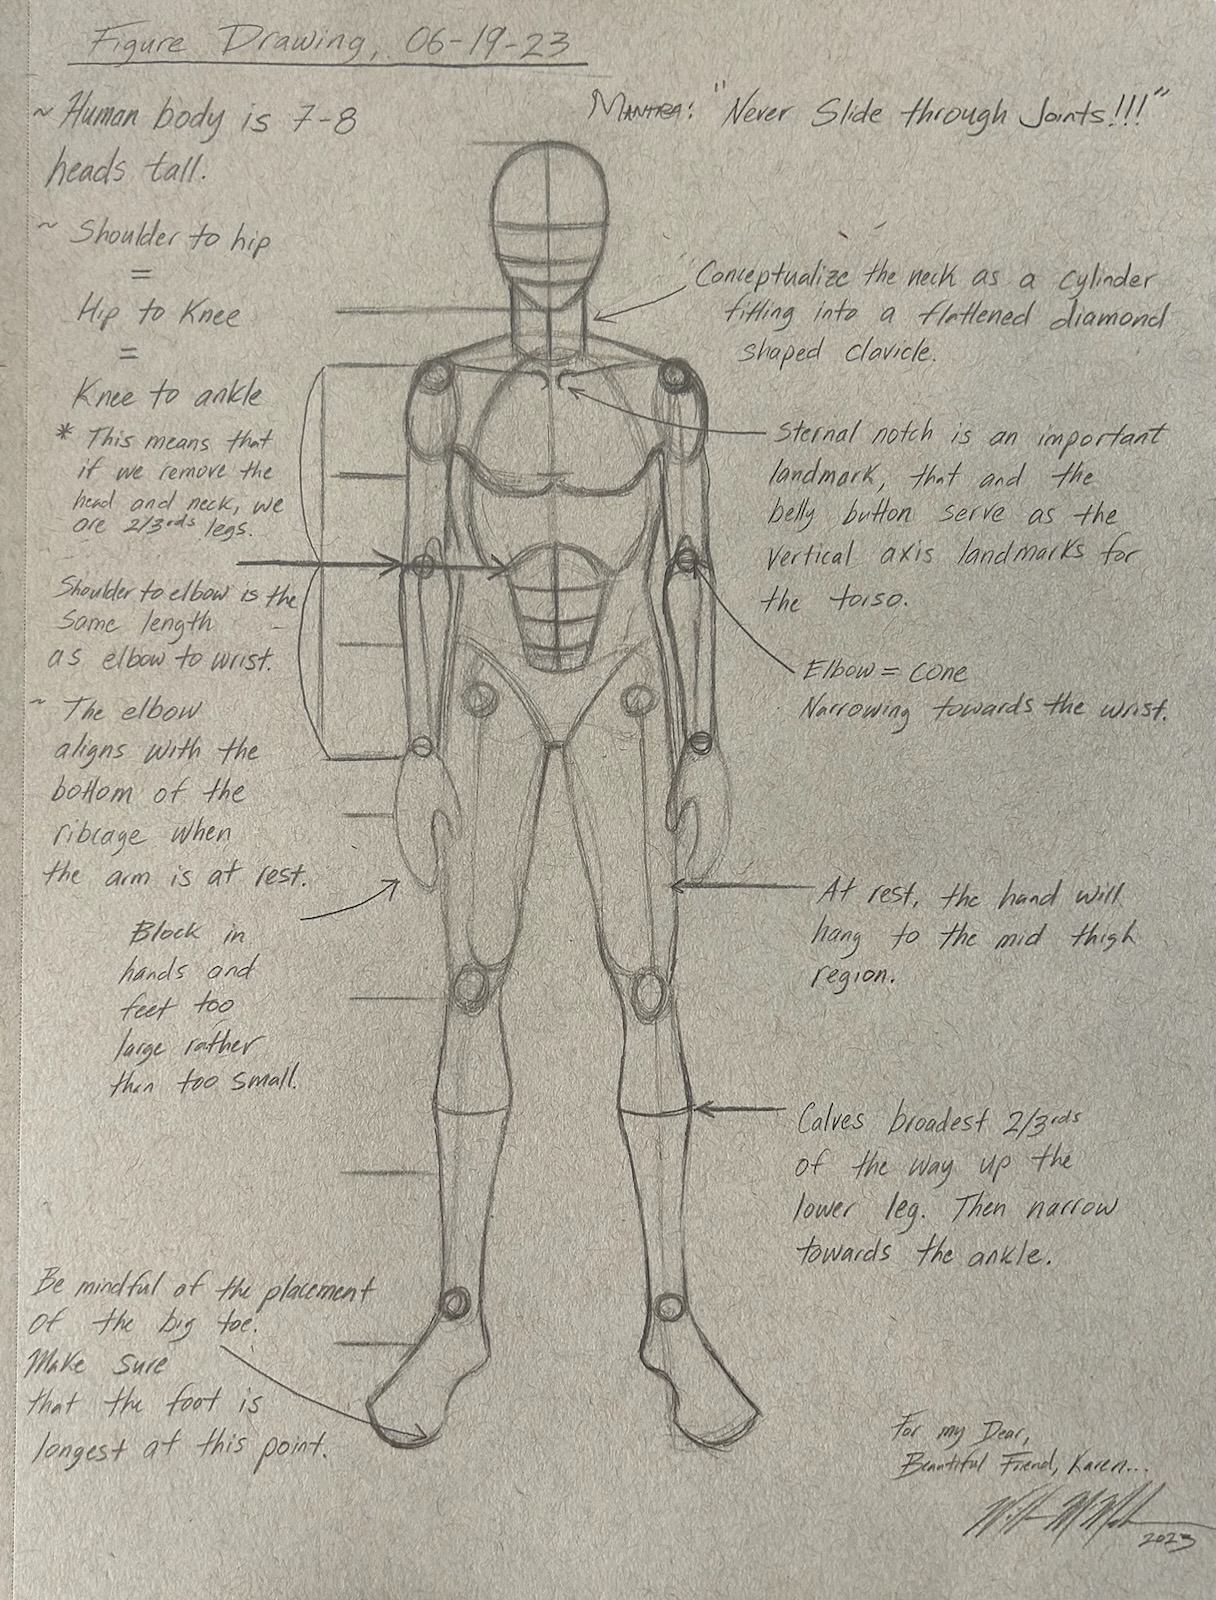 Figure Drawing, 06-19-23
~ Human body is 7-8
heads tall.
Mantra: "Never Slide through Joints!!!"
~ Shoulder to hip
=
Hip to Knee
=
Knee to ankle
* This means that
if we remove the
head and neck, we
are 2/3rds legs.
Shoulder to elbow is the
same length
as elbow to wrist.
~ The elbow
aligns with the
bottom of the
ribcage when
the arm is at rest.
Block in
hands and
feet too
large rather
than too small.
Be mindful of the placement
of the big toe.
Make sure
that the foot is
longest at this point.
Conceptualize the neck as a cylinder
fitting into a flattened diamond
shaped clavicle.
Sternal notch is an important
landmark, that and the
belly button serve as the
vertical axis landmarks for
the torso.
Elbow = cone
Narrowing towards the wrist.
At rest, the hand will
hang to the mid thigh
region.
Calves broadest 2/3rds
of the way up the
lower leg. Then narrow
towards the ankle.
For my Dear,
Beautiful Friend, Karen...
2023